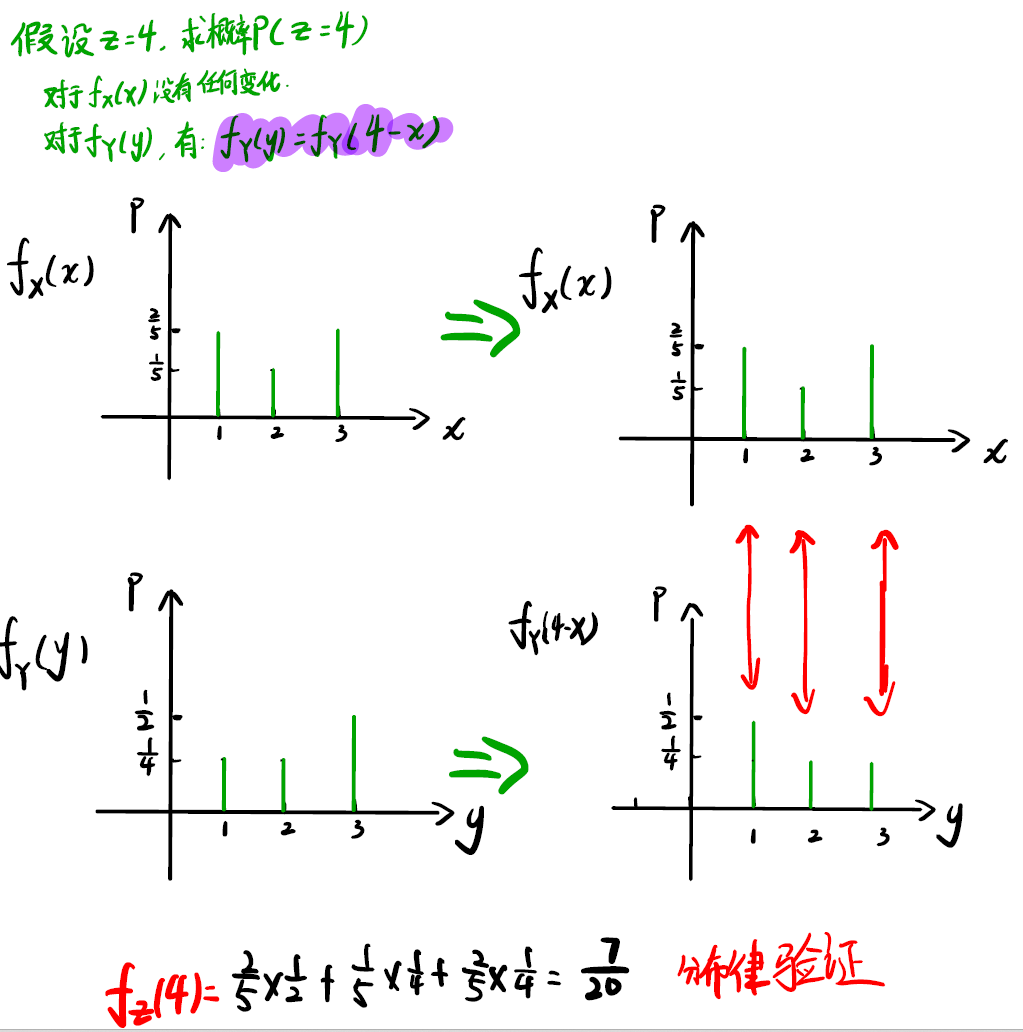 假设z=4, 求概率P(z=4)
对于fx(x)没有任何变化.
对于fY(y), 有: fY(y)=fY(4-x)
P
fX(x)
2/5
1/5
1 2 3
x
P
fX(x)
2/5
1/5
1 2 3
x
P
fY(y)
1/2
1/4
1 2 3
y
P
fY(4-x)
1/2
1/4
1 2 3
y
fz(4)= 2/5×1/2+1/5×1/4+2/5×1/4=7/20 分布律验证